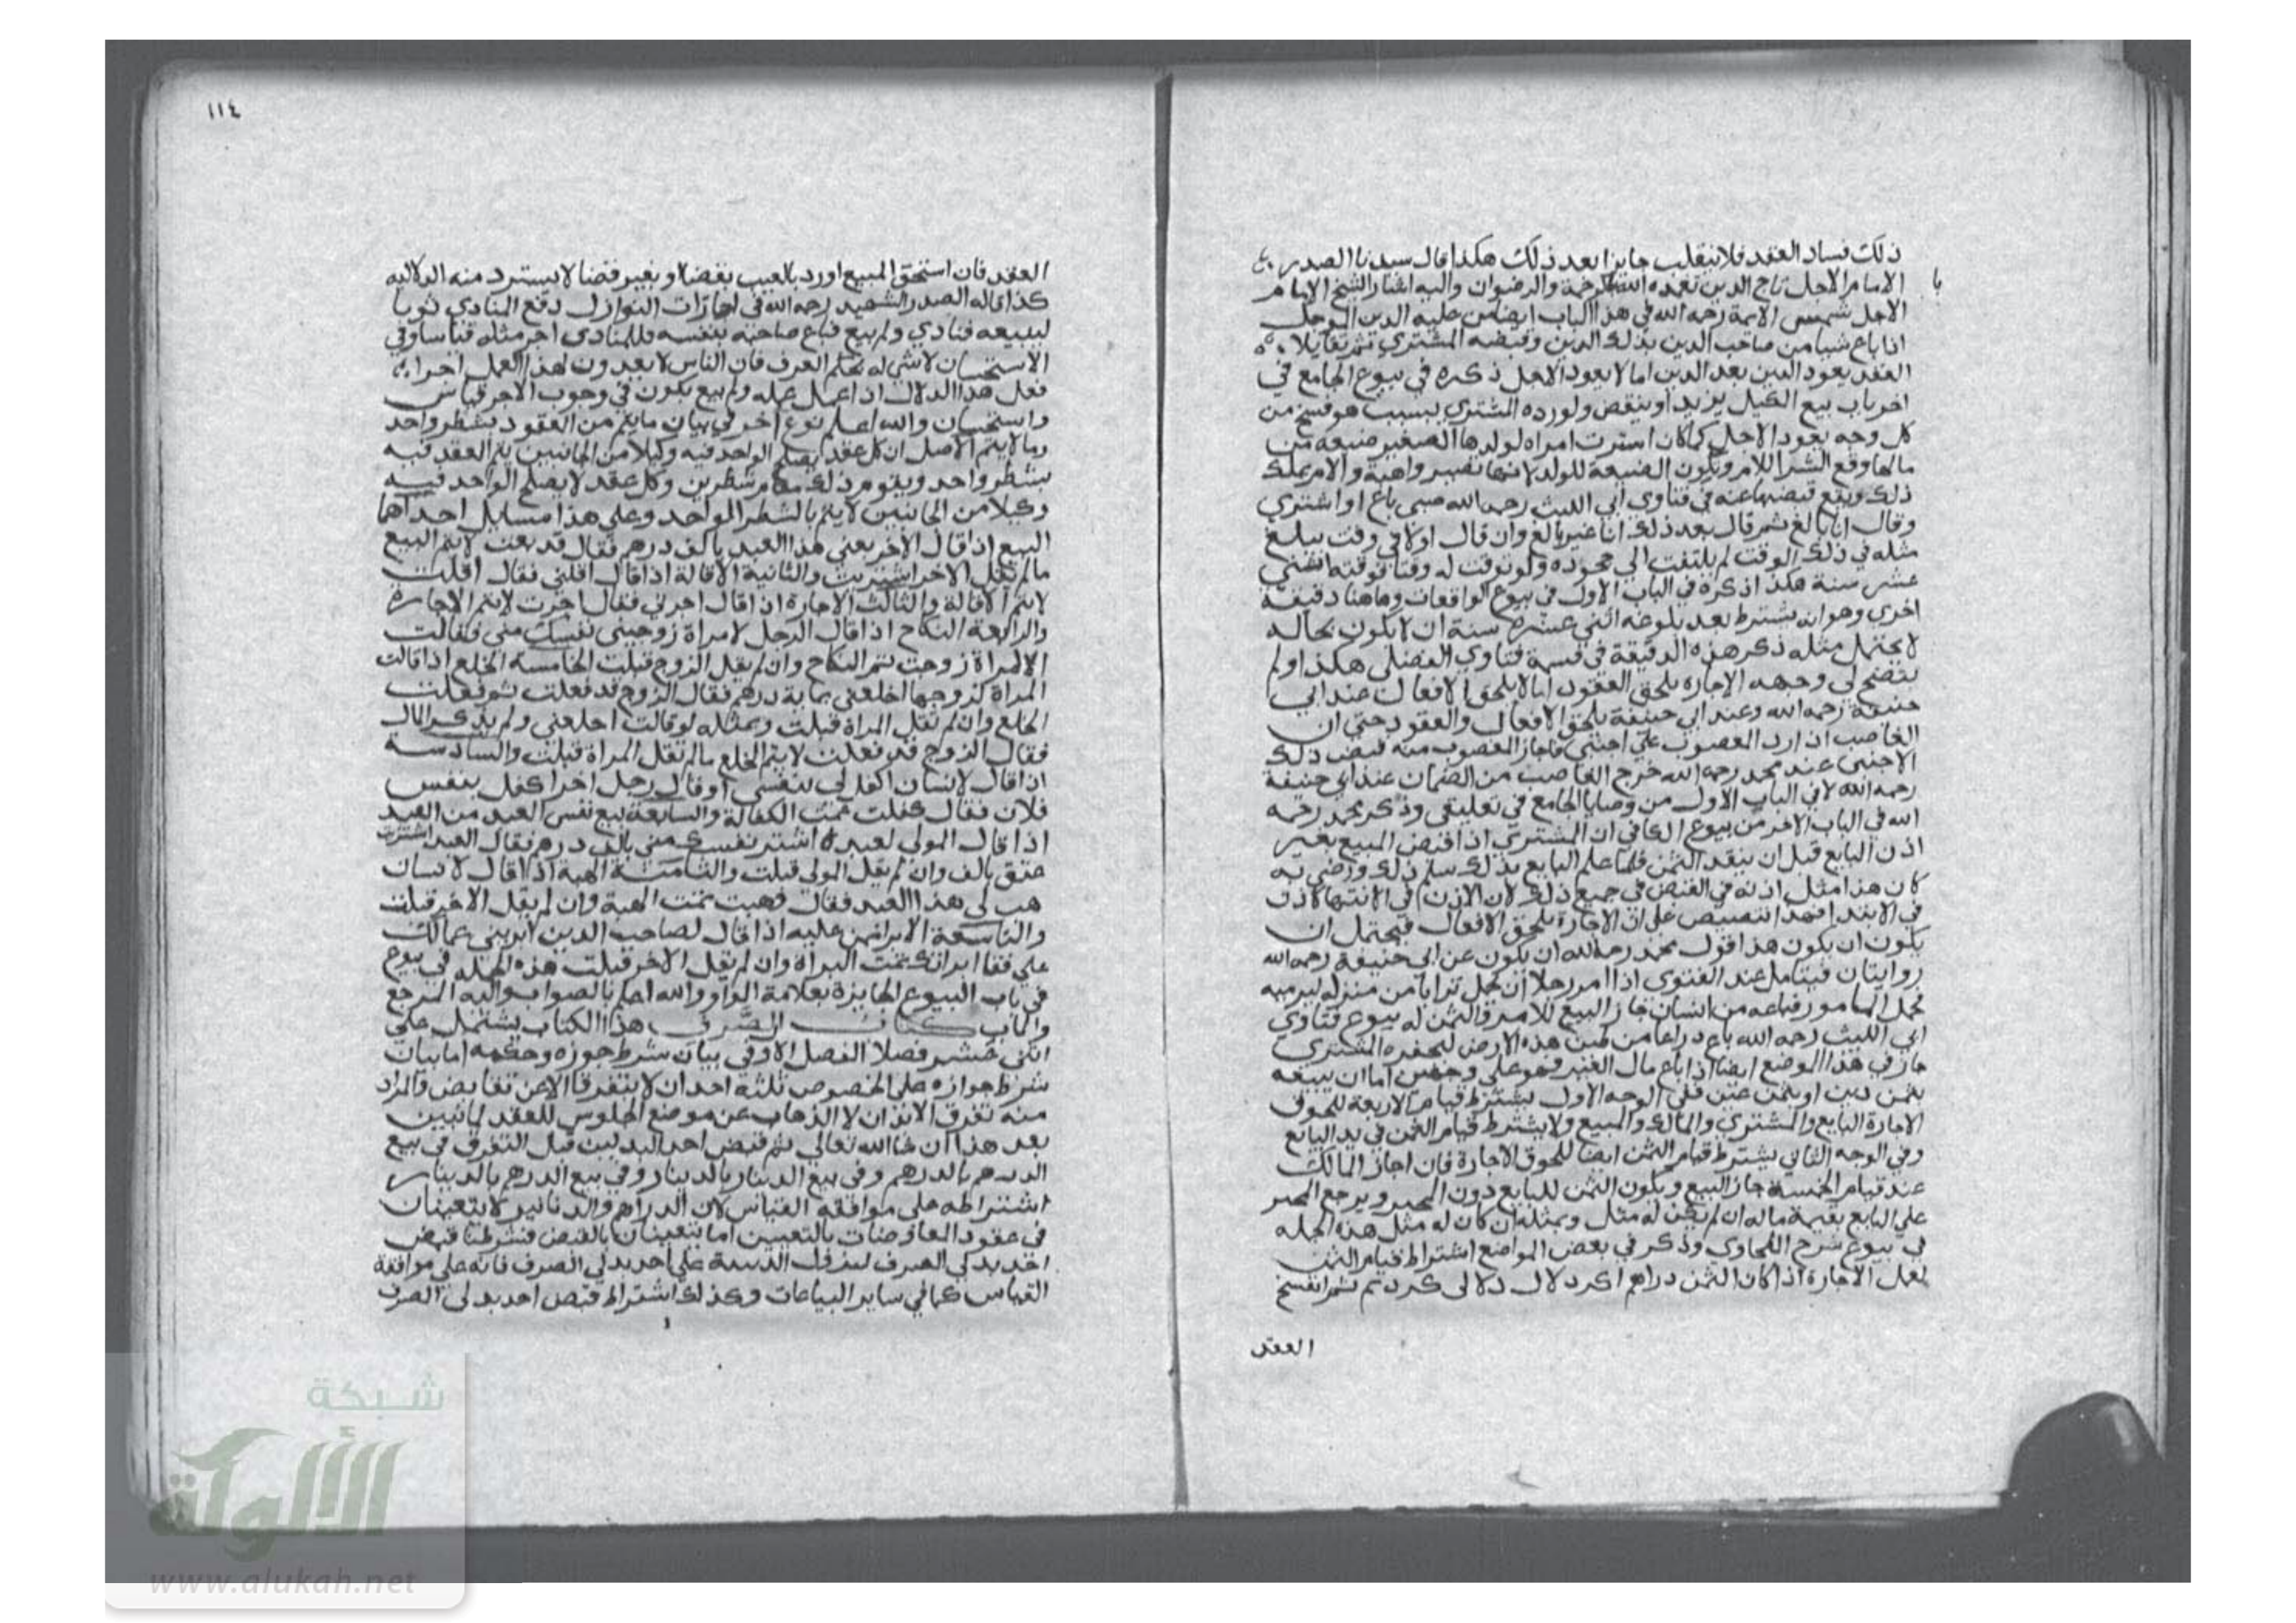 ذلك فساد العقد فلا ينقلب جايزا بعد ذلك هكذا قال سيدنا الصدر
الامام الاجل تاج الدين تغمده الله بالرحمة والرضوان واليه اشار الشيخ الامام
با
الاجل شمس الايمة رحمه الله في هذا الباب ايضا من عليه الدين الموجل
اذا باع شيا من صاحب الدين بذلك الدين وقبضه المشتري ثم تقايلا
العقد يعود الدين بعد الدين اما لا يعود الاجل ذكره في بيوع الجامع في
اخر باب بيع الكيل يزيد او ينقص ولو رده المشتري بسبب هو فسخ من
كل وجه يعود الاجل كما كان اشترت امراة لولدها الصغير ضيعة من
مالها وقع الشرا للام وتكون الضيعة للولد لانها تصير واهبة والام تملك
ذلك ويقع قبضها عنه في فتاوي ابي الليث رحمه الله صبي باع او اشتري
وقال انا بالغ ثم قال بعد ذلك انا غير بالغ وان قال اولا في وقت يبلغ
مثله في ذلك الوقت لم يلتفت الي جحوده ولو توقت له وقتا فوقته اثني
عشر سنة هكذا ذكره في الباب الاول في بيوع الواقعات وهاهنا دقيقة
اخرى وهو انه يشترط بعد بلوغه اثني عشر سنة ان لا يكون بحاله
لا يحتمل مثله ذكر هذه الدقيقة في قسمة فتاوي الفضلي هكذا ولم
يتضح لي وجهه الاجازة يلحق العقود اما لا يلحق الافعال عند ابي
حنيفة رحمه الله وعند ابي حنيفة يلحق الافعال والعقود حتي ان
الغاصب اذا رد المغصوب علي اجنبي فاجاز المغصوب منه قبض ذلك
الاجنبي عند محمد رحمه الله خرج الغاصب من الضمان عند ابي حنيفة
رحمه الله لا في الباب الاول من وصايا الجامع في تعليقي وذكر محمد رحمه
الله في الباب الاخر من بيوع الكافي ان المشتري اذا قبض المبيع بغير
اذن البايع قبل ان ينقد الثمن فلما علم البايع بذلك سلم ذلك ورضي به
كان هذا مثل اذنه في القبض في جميع ذلك لان الاذن في الانتها كالاذن
في الابتدا فهذا تنصيص على ان الاجازة يلحق الافعال فيحتمل ان
يكون ان يكون هذا قول محمد رحمه الله ان يكون عن ابي حنيفة رحمه الله
روايتان فيتامل عند الفتوى اذا امر رجلا ان يحمل ترابا من منزله ليرميه
فحمل المامور فباعه من انسان جاز البيع للامر والثمن له بيوع فتاوي
ابي الليث رحمه الله باع دراعا من طين هذه الارض ليحفره المشتري
جاز في هذا الموضع ايضا اذا باع مال الغير فهو على وجهين اما ان يبيعه
بثمن دين او بثمن عين ففي الوجه الاول يشترط قيام الاربعة للحوق
الاجازة البايع والمشتري والمالك والمبيع ولا يشترط قيام الثمن في يد البايع
وفي الوجه الثاني يشترط قيام الثمن ايضا للحوق الاجازة فان اجاز المالك
عند قيام الخمسة جاز البيع ويكون الثمن للبايع دون المجيز ويرجع المجيز
علي البايع بقيمة ماله ان لم يكن له مثل وبمثله ان كان له مثل هذه الجملة
في بيوع شرح الطحاوي وذكر في بعض المواضع اشتراط قيام الثمن
لعمل الاجازة اذا كان الثمن دراهم اكر دلال دلالى كرد ثم انفسخ
العقد
١١٤
العقد فان استحق المبيع او رد بالعيب بقضا او بغير قضا لا يسترد منه الدلالية
كذا قاله الصدر الشهيد رحمه الله في اجازات النوازل دفع المنادي ثوبا
ليبيعه فنادي ولم يبع فباع صاحبه بنفسه فللمنادى اجر مثله قياسا وفي
الاستحسان لا شي له بحكم العرف فان الناس لا يعدون لهذا العمل اجرا
فعلى هذا الدلال اذا عمل عمله ولم يبع يكون في وجوب الاجر قياس
واستحسان والله اعلم نوع اخر في بيان ما يتم من العقود بشطر واحد
وما لا يتم الاصل ان كل عقد يصلح الواحد فيه وكيلا من الجانبين يتم العقد فيه
بشطر واحد ويقوم ذلك مقام شطرين وكل عقد لا يصلح الواحد فيه
وكيلا من الجانبين لا يتم بالشطر الواحد وعلي هذا مسايل احداها
البيع اذا قال الاخر بعني هذا العبد بالف درهم فقال قد بعت لا يتم البيع
ما لم يقل الاخر اشتريت والثانية الاقالة اذا قال اقلني فقال اقلت
لا يتم الاقالة والثالث الاجارة اذا قال اجرني فقال اجرت لا يتم الاجارة
والرابعة النكاح اذا قال الرجل لامراة زوجيني نفسك مني فقالت
الامراة زوجت يتم النكاح وان لم يقل الزوج قبلت الخامسة الخلع اذا قالت
المراة لزوجها اخلعني بماية درهم فقال الزوج قد فعلت
الخلع وان لم تقل المراة قبلت وبمثله لو قالت اخلعني ولم يذكر المال
فقال الزوج قد فعلت لا يتم الخلع ما لم تقل المراة قبلت والسادسة
اذا قال لانسان اكفل لي بنفسي او قال رجل اخر اكفل بنفس
فلان فقال كفلت تمت الكفالة والسابعة بيع نفس العبد من العبد
اذا قال المولي لعبده اشتر نفسك مني بالف درهم فقال العبد اشتريت
عتق بالف وان لم يقل المولى قبلت والثامنة الهبة اذا قال لانسان
هب لي هذا العبد فقال وهبت تمت الهبة وان لم يقل الاخر قبلت
والتاسعة الابرا من عليه اذا قال لصاحب الدين ابريني عمالك
علي فقال ابراتك تمت البراة وان لم يقل الاخر قبلت هذه الجملة في بيوع
في باب البيوع الجايزة بعلامة الواو والله اعلم بالصواب واليه المرجع
والماب كتاب الصرف هذا الكتاب يشتمل على
اثني عشر فصلا الفصل الاول في بيان شرط جوزه وحكمه اما بيان
شرط جوازه على الخصوص ثلثة احد ان لا يتفرقا الا عن تقابض والمراد
منه تفرق الابدان لا الذهاب عن موضع الجلوس للعقد لما نبين
بعد هذا ان شا الله تعالي ثم قبض احد البدلين قبل التفرق في بيع
الدرهم بالدرهم وفي بيع الدينار بالدينار وفي بيع الدرهم بالدينار
اشتراطه على موافقة القياس لان الدراهم والدنانير لا يتعينان
في عقود المعاوضات بالتعيين اما يتعينان بالقبض فشرطنا قبض
احد بدلي الصرف احد بدلي الصرف فانه علي موافقة
القياس كما في ساير البياعات وكذلك اشتراط قبض احد بدلى الصرف
شبكة
الألوكة
www.alukah.net